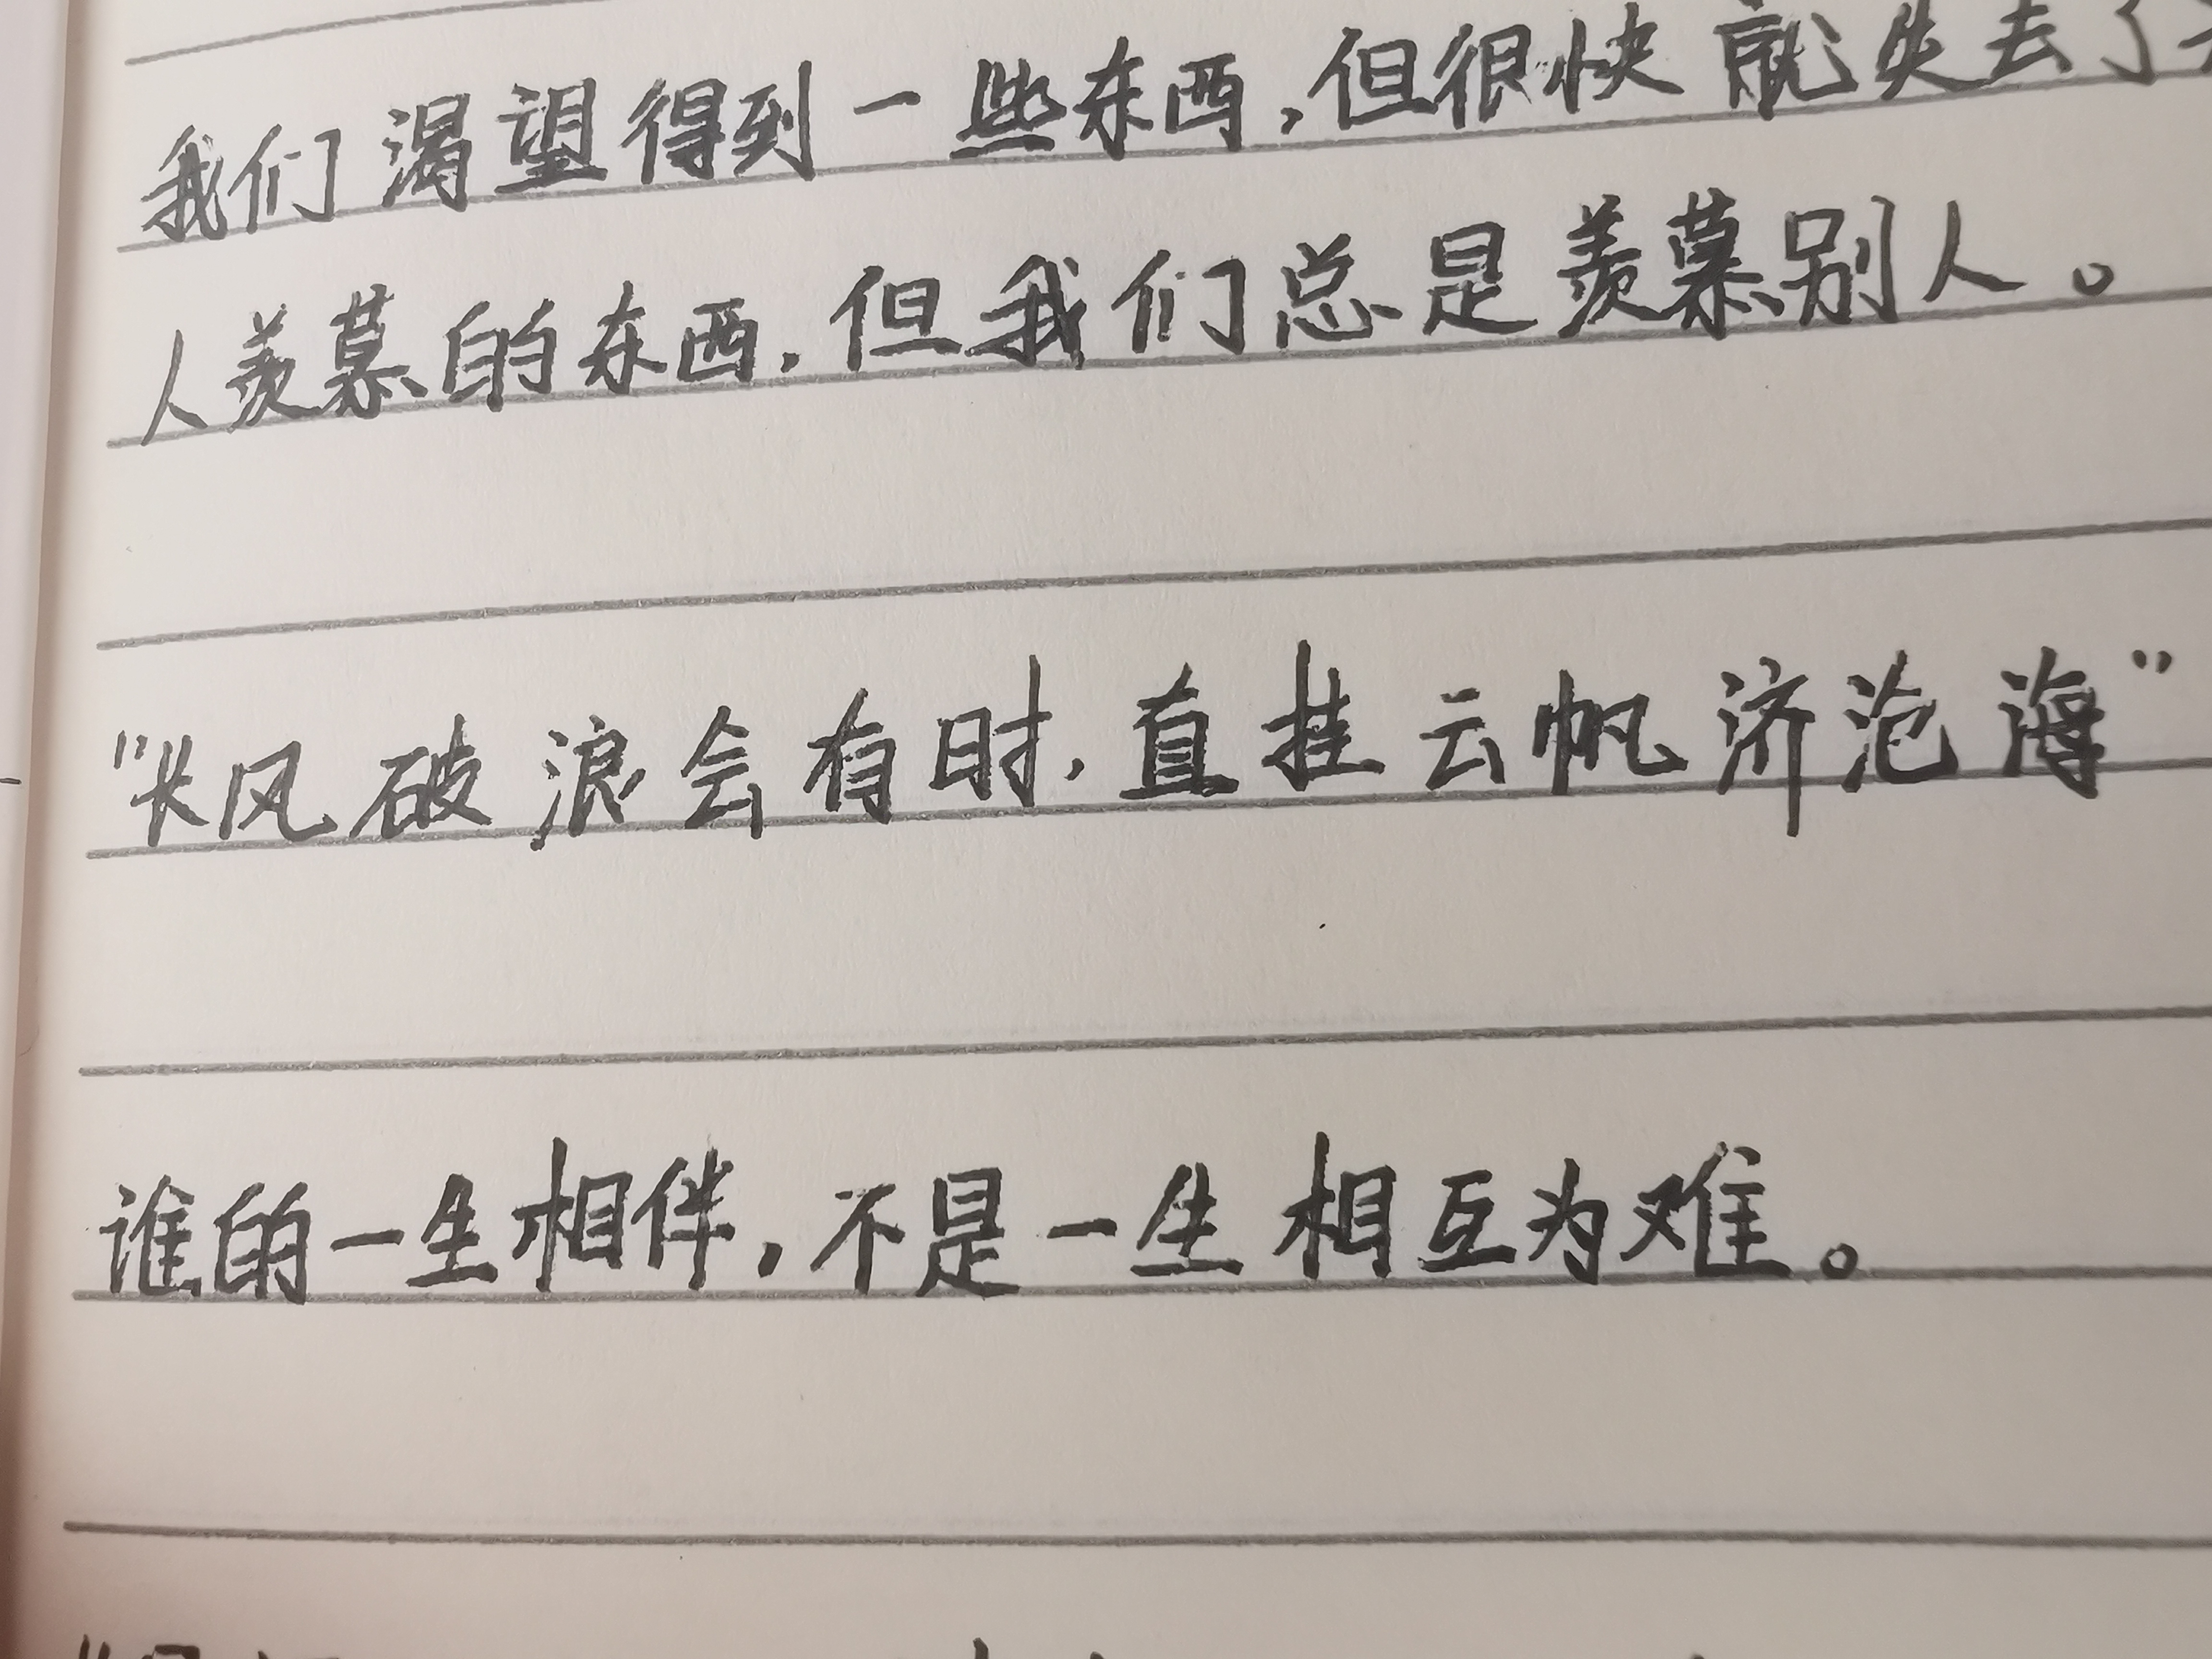 我们渴望得到一些东西,但很快就失去了
人羡慕的东西,但我们总是羡慕别人。
"长风破浪会有时,直挂云帆济沧海"
谁的一生相伴,不是一生相互为难。